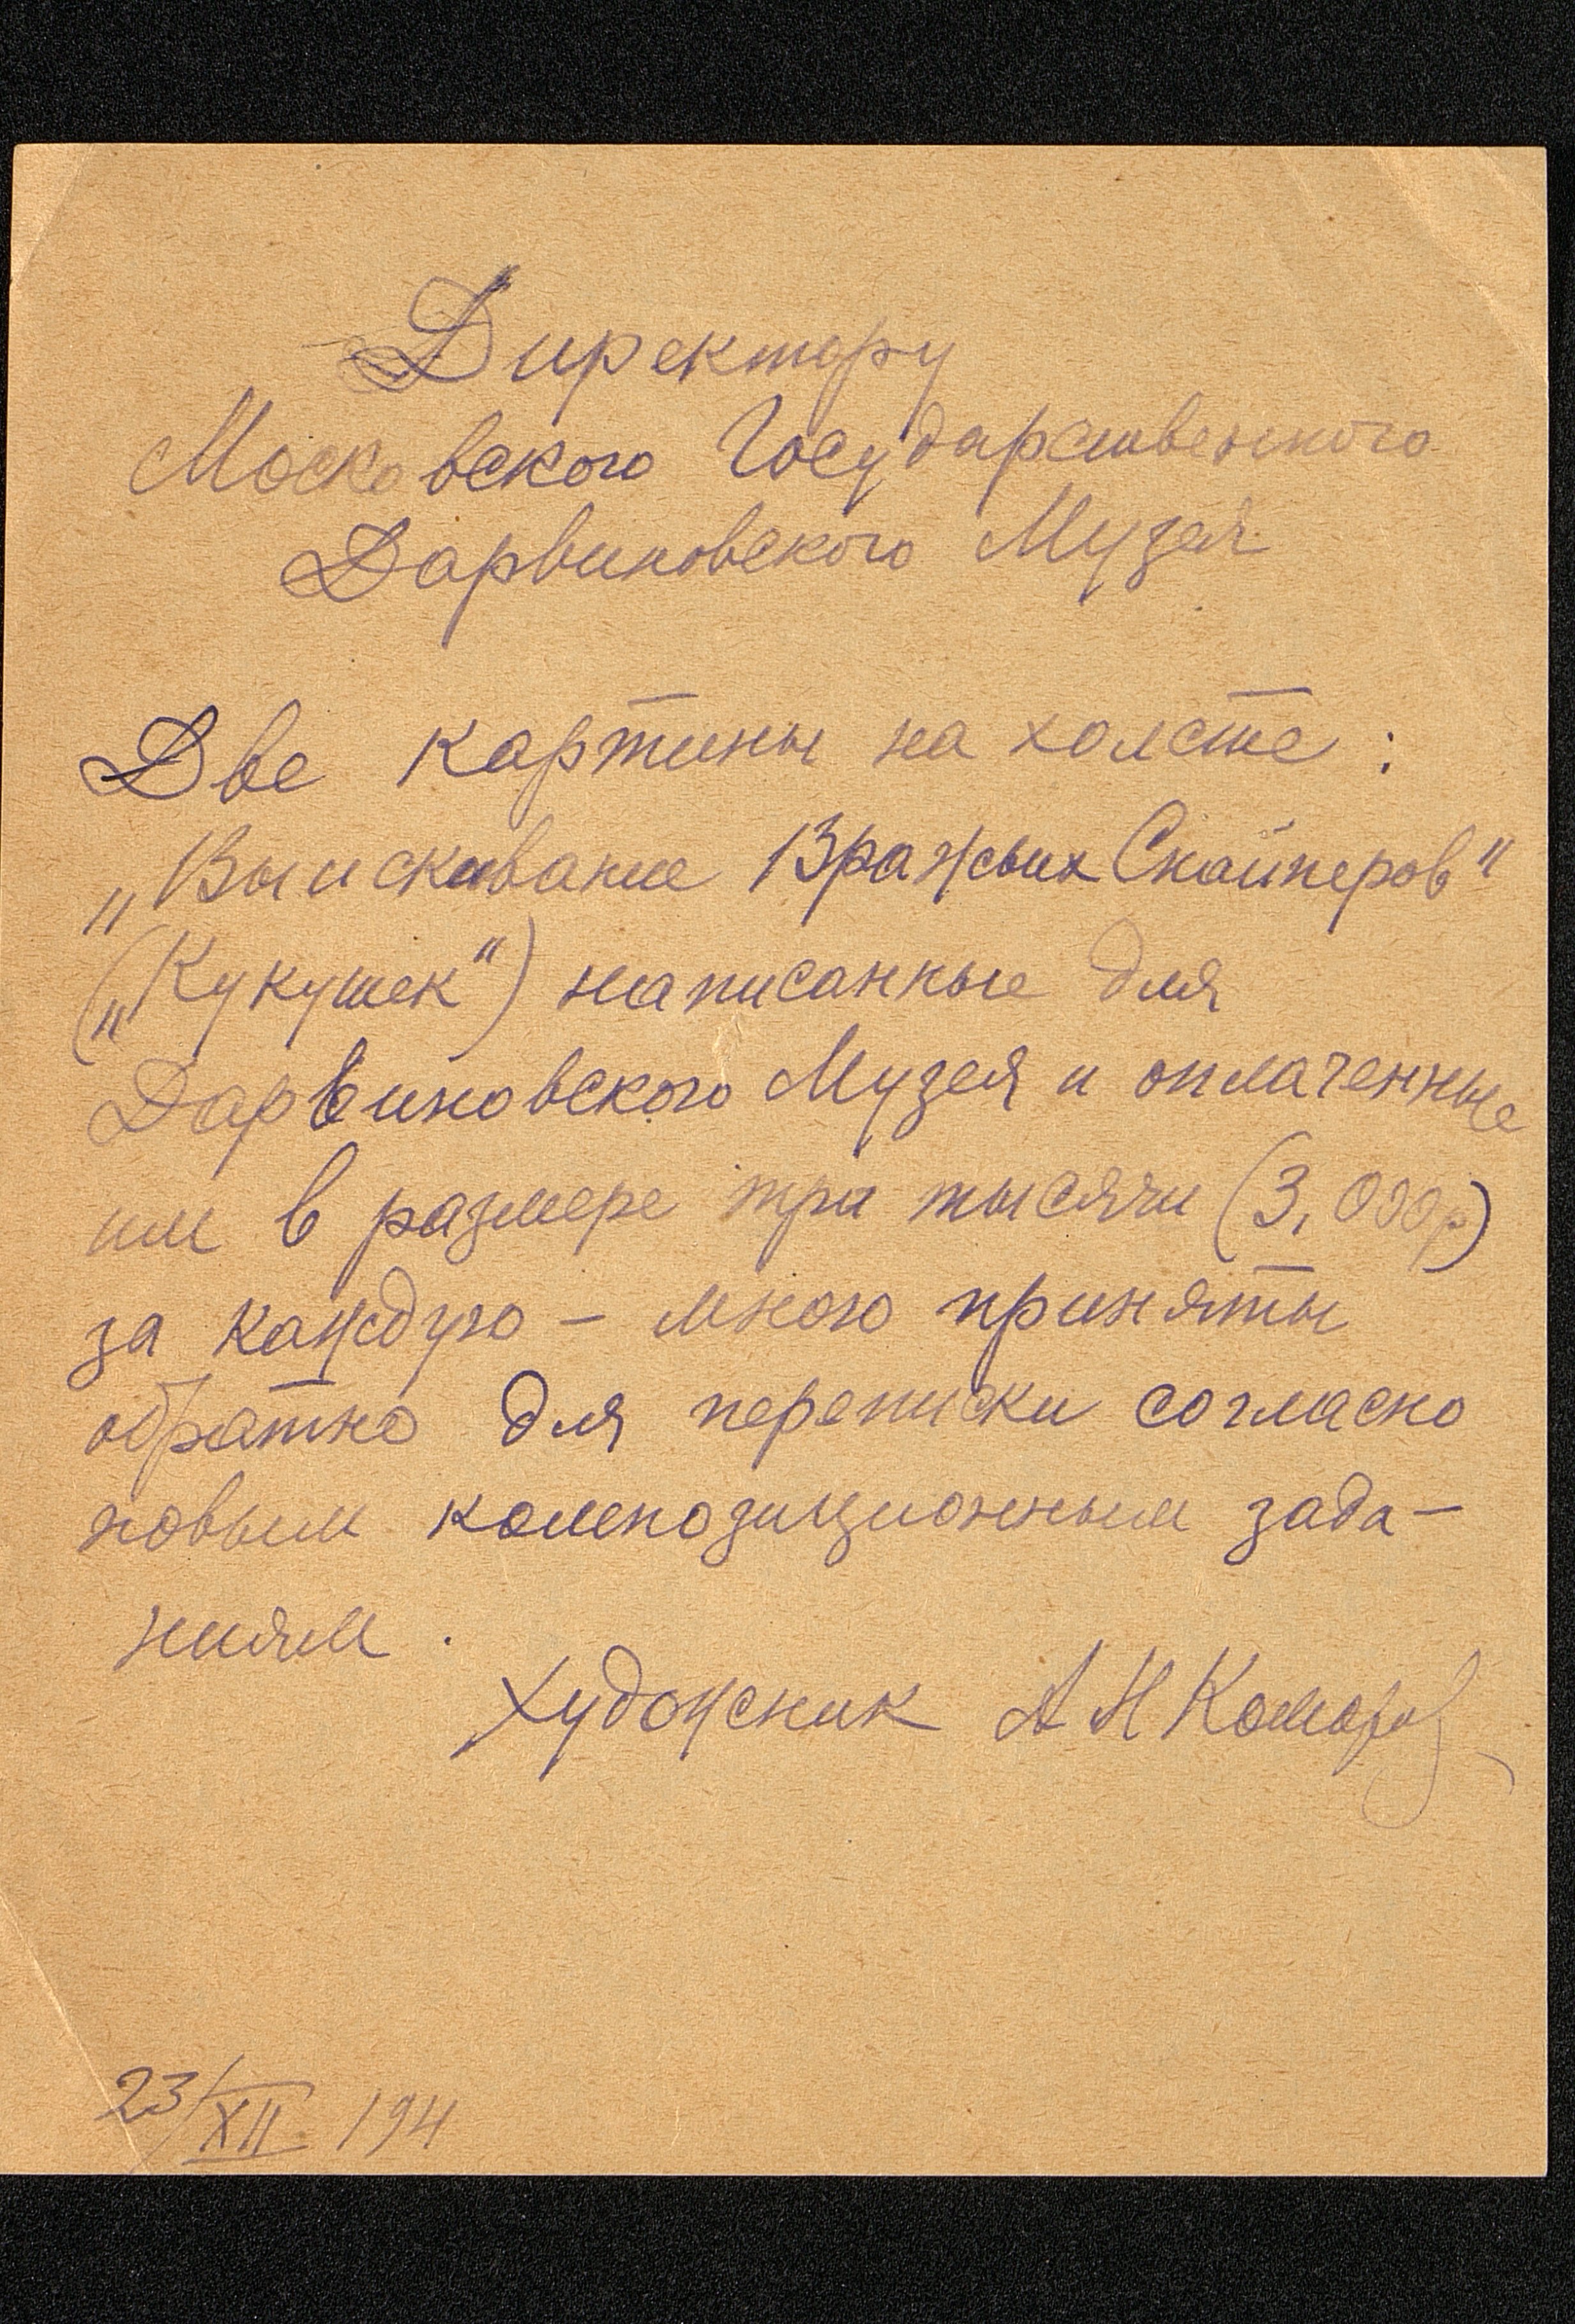 Директору
Московского Государственного
Дарвиновского Музея
Две картины на холсте:
„Выискивание Вражьих Снайперов"
(„Кукушек") написанные для
Дарвиновского Музея и оплаченные
им в размере три тысячи (3,000р)
за каждую – мною приняты
обратно для переписки согласно
новым композиционным зада–
ниям.
Художник А Н Комаров
23/XII 194